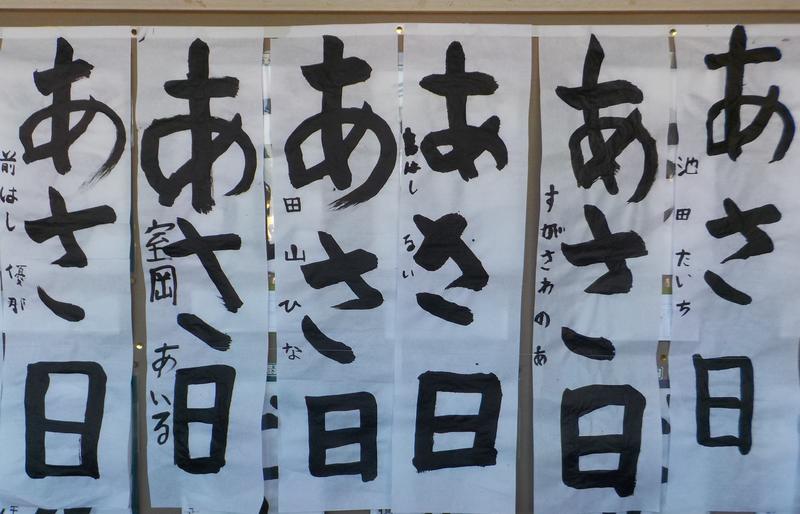 あさ日
池田 たいち
あさ日
すがさわ のあ
あさ日
はし るい
あさ日
田山 ひな
あさ日
室岡 あいる
あさ日
前はし 優那